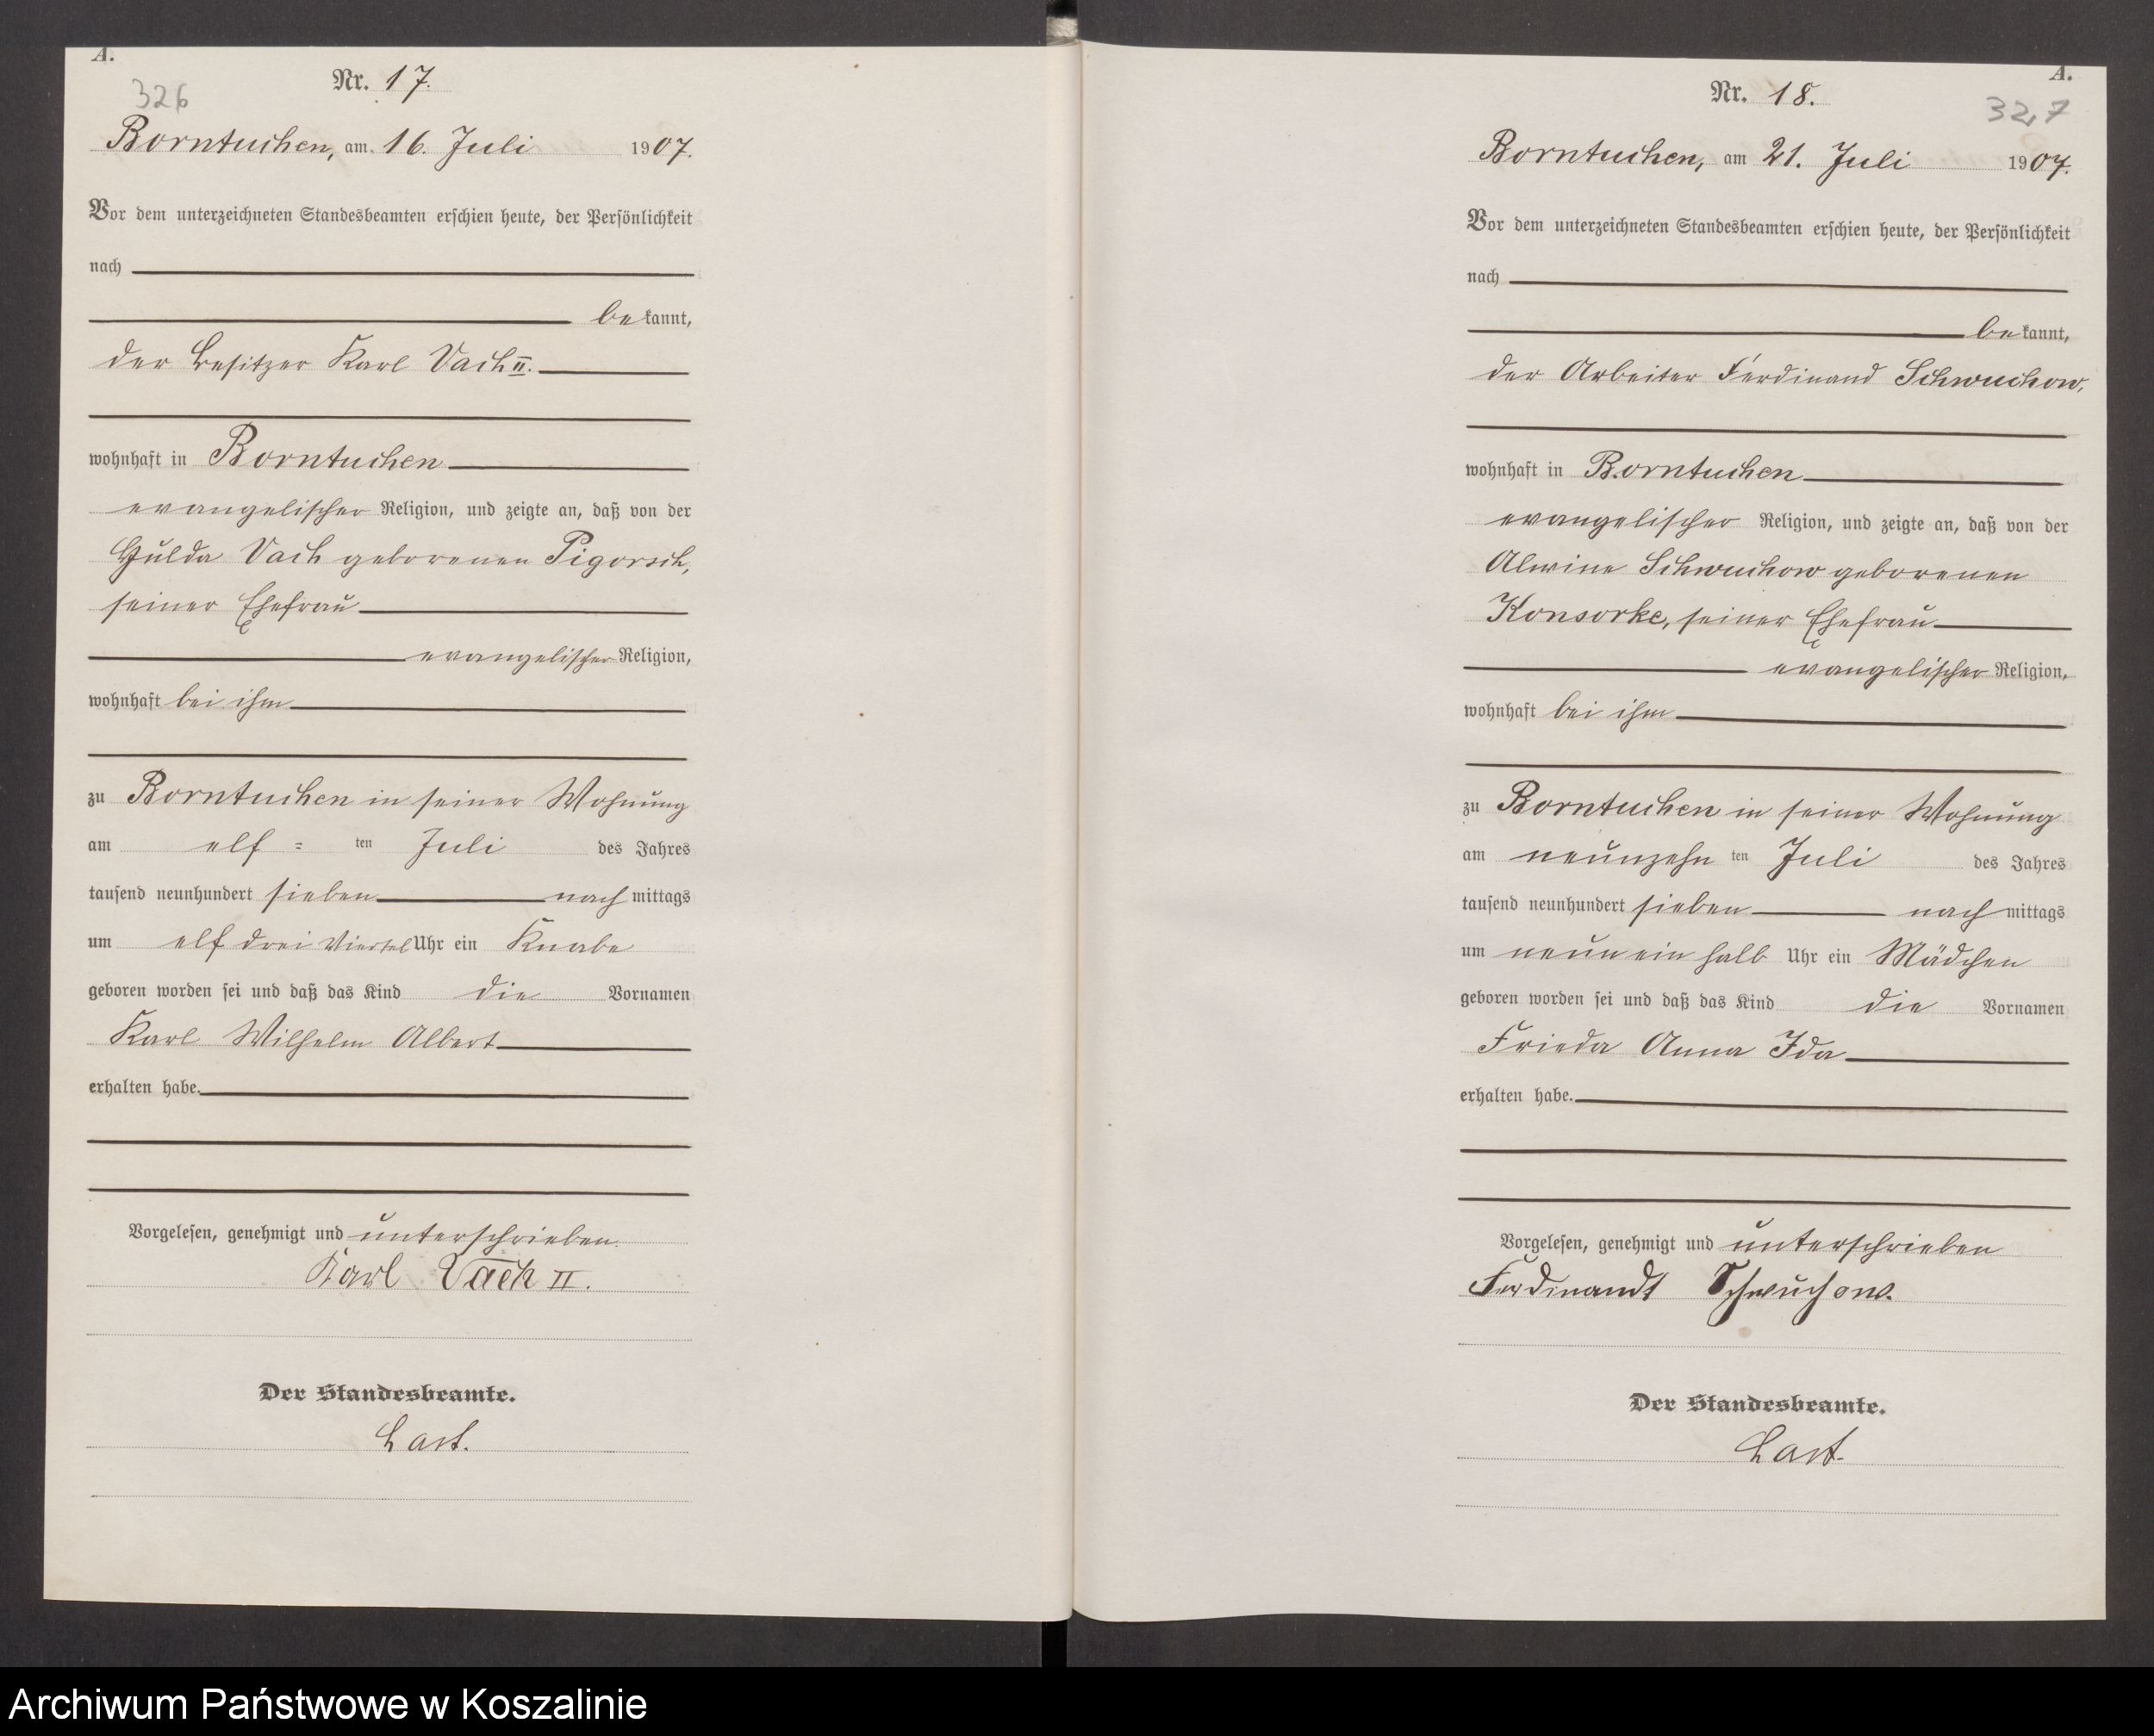 A.
326
Nr. 17.
Borntuchen, am 16. Juli 1907.
Vor dem unterzeichneten Standesbeamten erschien heute, der Persönlichkeit
nach
bekannt,
der Besitzer Karl Vach II.
wohnhaft in Borntuchen
evangelischer Religion, und zeigte an, daß von der
Hulda Vach geborenen Pigorsch,
seiner Ehefrau
evangelischer Religion,
wohnhaft bei ihm
zu Borntuchen in seiner Wohnung
am elf = ten Juli des Jahres
tausend neunhundert sieben nachmittags
um elf drei Viertel Uhr ein Knabe
geboren worden sei und daß das Kind die Vornamen
Karl Wilhelm Albert
erhalten habe.
Vorgelesen, genehmigt und unterschrieben.
Karl Vach II.
Der Standesbeamte.
Last.
A.
327
Nr. 18.
Borntuchen, am 21. Juli 1907.
Vor dem unterzeichneten Standesbeamten erschien heute, der Persönlichkeit
nach
bekannt,
der Arbeiter Ferdinand Schwuchow,
wohnhaft in Borntuchen
evangelischer Religion, und zeigte an, daß von der
Alwine Schwuchow geborenen
Konsorke, seiner Ehefrau
evangelischer Religion,
wohnhaft bei ihm
zu Borntuchen in seiner Wohnung
am neunzehn ten Juli des Jahres
tausend neunhundert sieben nachmittags
um neun ein halb Uhr ein Mädchen
geboren worden sei und daß das Kind die Vornamen
Frieda Anna Ida
erhalten habe.
Vorgelesen, genehmigt und unterschrieben
Ferdinandt Schwuchow.
Der Standesbeamte.
Last.
Archiwum Państwowe w Koszalinie